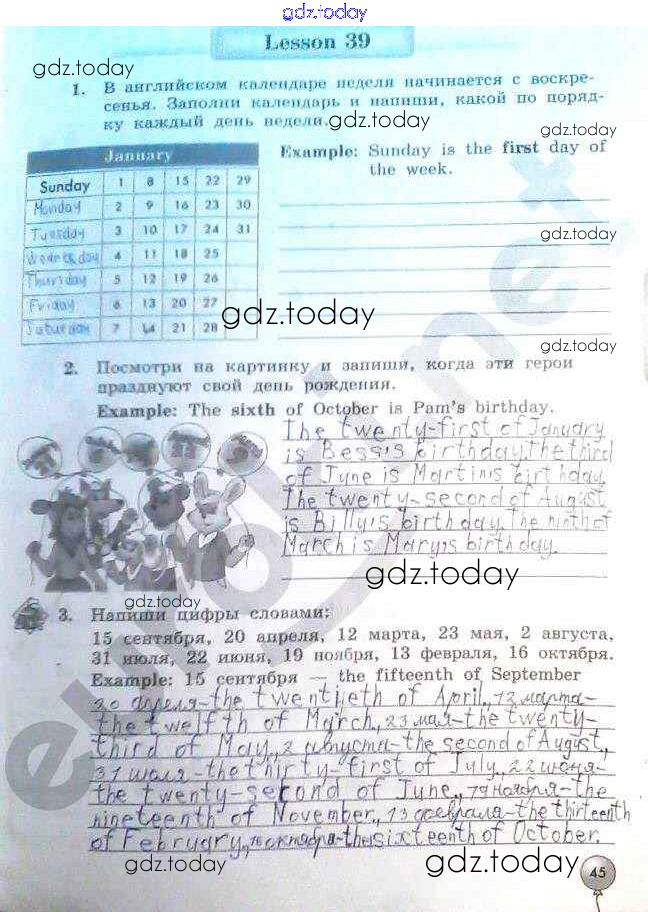 gdz.today
Lesson 39
gdz.today
1. В английском календаре неделя начинается с воскре-
сенья. Заполни календарь и напиши, какой по поряд-
ку каждый день недели.
gdz.today
gdz.today
January
Sunday 1 8 15 22 29
Monday 2 9 16 23 30
Tuesday 3 10 17 24 31
Wednesday 4 11 18 25
Thursday 5 12 19 26
Friday 6 13 20 27
Saturday 7 14 21 28
Example: Sunday is the first day of
the week.
gdz.today
gdz.today
gdz.today
2. Посмотри на картинку и запиши, когда эти герои
празднуют свой день рождения.
Example: The sixth of October is Pam's birthday.
The twenty-first of January
is Bess's birthday. The third
of June is Martin's birthday.
The twenty-second of August
is Billy's birthday. The ninth of
March is Mary's birthday.
gdz.today
gdz.today
3. Напиши цифры словами:
15 сентября, 20 апреля, 12 марта, 23 мая, 2 августа,
31 июля, 22 июня, 19 ноября, 13 февраля, 16 октября.
Example: 15 сентября — the fifteenth of September
20 апреля-the twentieth of April, 12 марта-
the twelfth of March, 23 мая-the twenty-
third of May, 2 августа-the second of August,
31 июля-the thirty-first of July, 22 июня-
the twenty-second of June, 19 ноября-the
nineteenth of November, 13 февраля-the thirteenth
of February, 16 октября-the sixteenth of October.
gdz.today
gdz.today
45